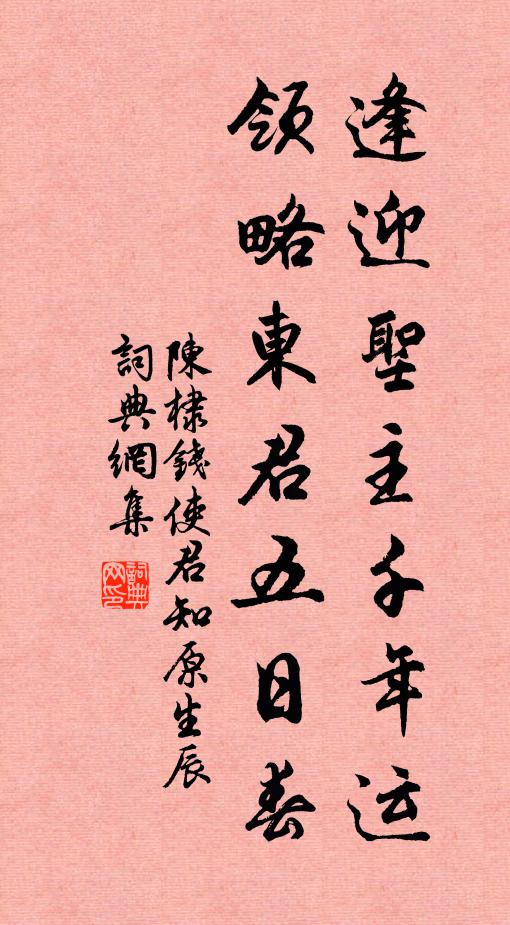 逢迎聖主千年运
領略東君五日春
陳棣錢使君知原生辰
詞典網集
詞典网印